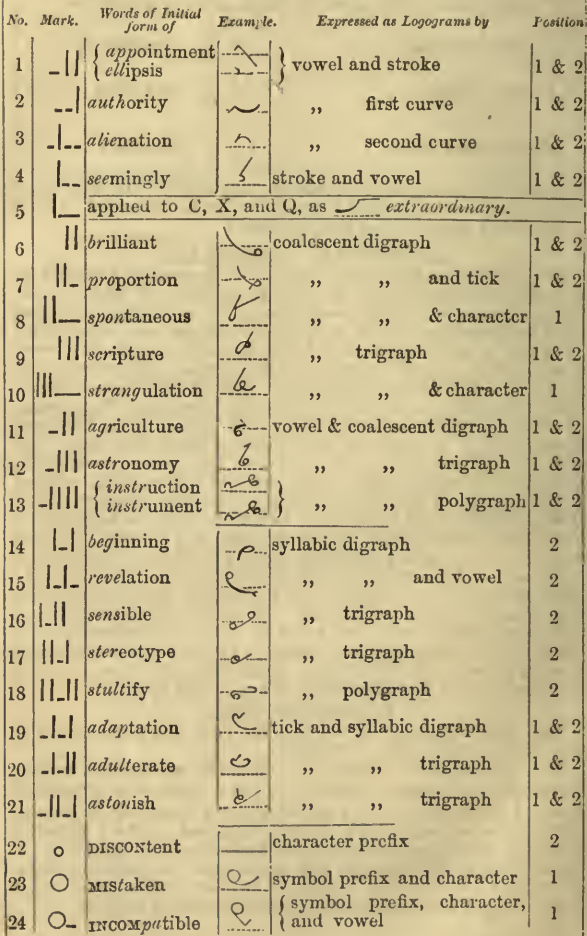 No. Mark. Words of Initial form of Example. Expressed as Logograms by Position
1 { appointment ellipsis } vowel and stroke 1 & 2
2 authority „ first curve 1 & 2
3 alienation „ second curve 1 & 2
4 seemingly stroke and vowel 1 & 2
5 applied to C, X, and Q, as extraordinary.
6 brilliant coalescent digraph 1 & 2
7 proportion „ „ and tick 1 & 2
8 spontaneous „ „ & character 1
9 scripture „ trigraph 1 & 2
10 strangulation „ „ & character 1
11 agriculture vowel & coalescent digraph 1 & 2
12 astronomy „ „ trigraph 1 & 2
13 { instruction instrument } „ „ polygraph 1 & 2
14 beginning syllabic digraph 2
15 revelation „ „ and vowel 2
16 sensible „ trigraph 2
17 stereotype „ trigraph 2
18 stultify „ polygraph 2
19 adaptation tick and syllabic digraph 1 & 2
20 adulterate „ „ trigraph 1 & 2
21 astonish „ „ trigraph 1 & 2
22 DISCONtent character prefix 2
23 MIStaken symbol prefix and character 1
24 INCOMpatible { symbol prefix, character, and vowel 1